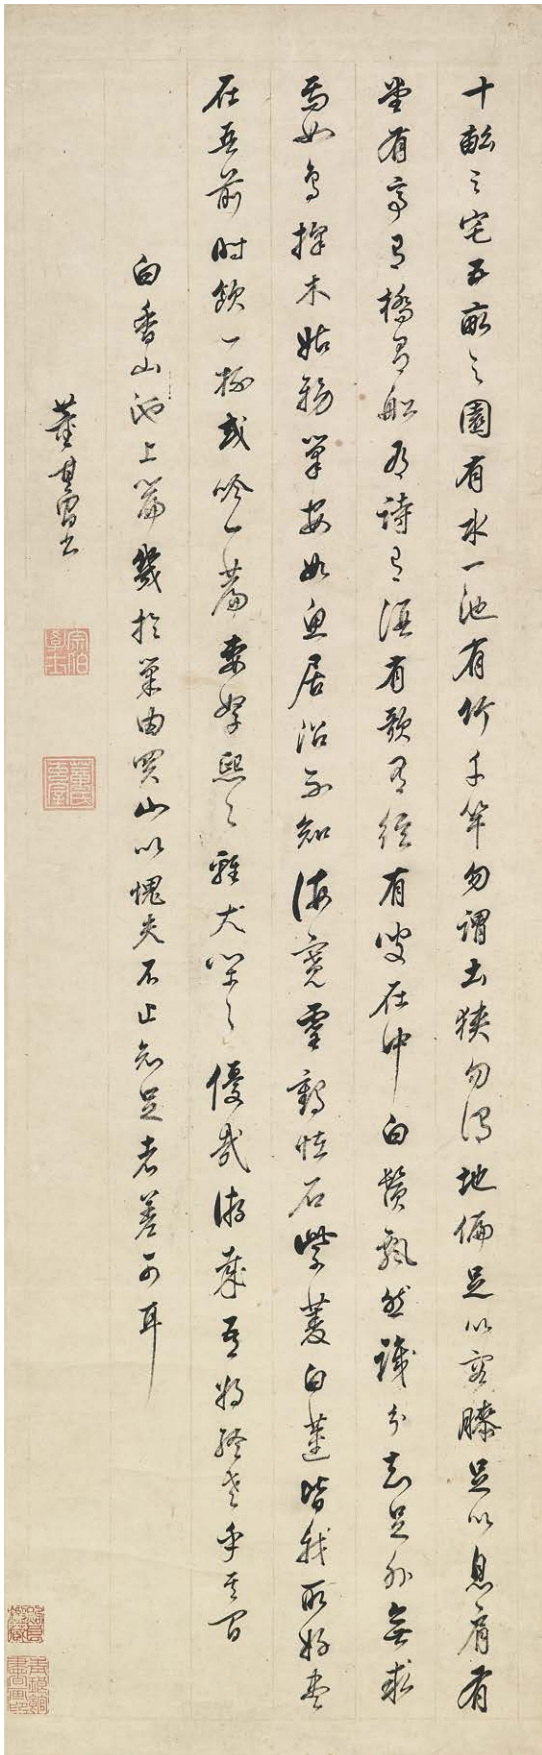 十畝之宅五畝之園有水一池有竹千竿勿謂土狹勿謂地偏足以容膝足以息肩有
堂有亭有橋有船有詩有酒有歌有絃有叟在中白鬚飄然識分知足外無求
焉如鳥擇木姑務巢安如魚居沼不知海寬靈鶴怪石紫菱白蓮皆我所好盡
在吾前時飲一杯或吟一篇妻孥熙〻雞犬閑〻優哉游哉吾將終老乎其間
白香山池上篇幾於巢由買山以愧夫不止知足者差可耳
董其昌書
宗伯學士
董氏玄宰